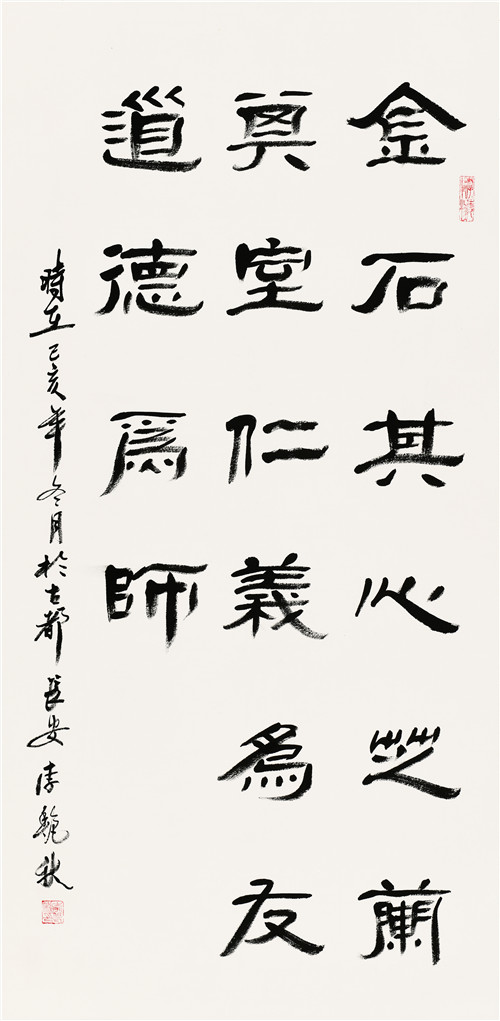 金石其心芝蘭
其室仁義爲友
道德爲師
時在己亥年冬月於古都長安李秋